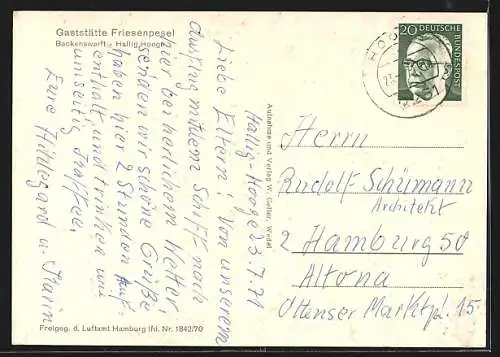 Gaststätte Friesenpesel
Backenswarft - Hallig Hooge
Hallig-Hooge 23.7.71
Liebe Eltern! Von unserem
Ausflug mit dem Schiff nach
hier bei herlichem Wetter
senden wir schöne Grüße!
haben hier 2 Stunden Auf-
enthalt und trinken um
umseitig Kaffee.
Eure Hildegard u. Karin
Freigng. d. Luftamt Hamburg lfd. Nr. 1842/70
Aufnahme und Verlag W. Geller, Wedel
20 DEUTSCHE
BUNDESPOST
HOO
Herrn
Rudolf Schümann
Architekt
2 Hamburg 50
Altona
Ottenser Marktpl. 15